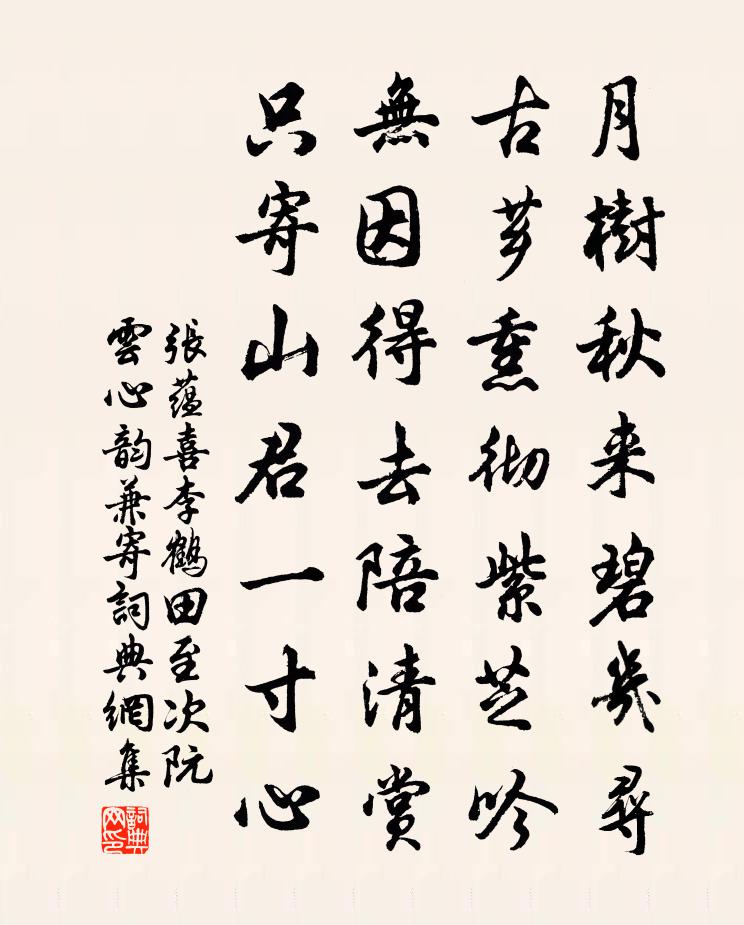 月樹秋来碧幾尋
古芗熏彻紫芝吟
無因得去陪清賞
只寄山君一寸心
張蕴喜李鶴田至次阮
雲心韵兼寄詞典網集
詞典网印